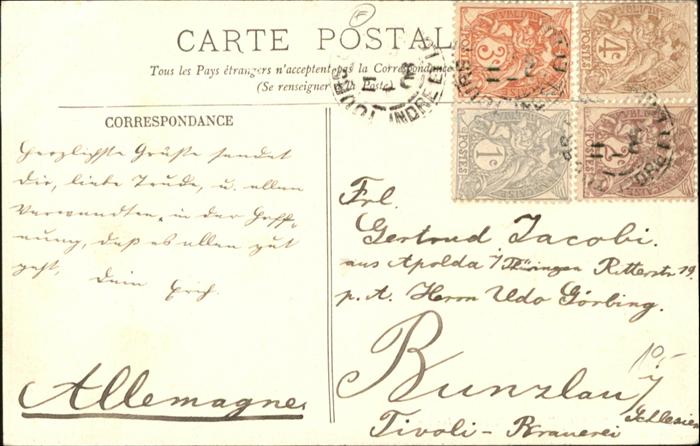 CARTE POSTALE
Tous les Pays étrangers n'acceptent pas la Correspondance
(Se renseigner à la Poste)
CORRESPONDANCE
Herzlichste Grüße sendet
Dir, liebe Trude, u. allen
Verwandten, in der Hoff-
nung, daß es allen gut
geht, Dein Erich.
Allemagne
Frl.
Gertrud Jacobi.
aus Apolda / Thüringen Ritterstr. 19.
p. A. Herrn Udo Görbing.
Bunzlau /
Schlesien
Tivoli-Brauerei
10.-
3c
4c
1c
2c
POSTES
TOURS
INDRE ET